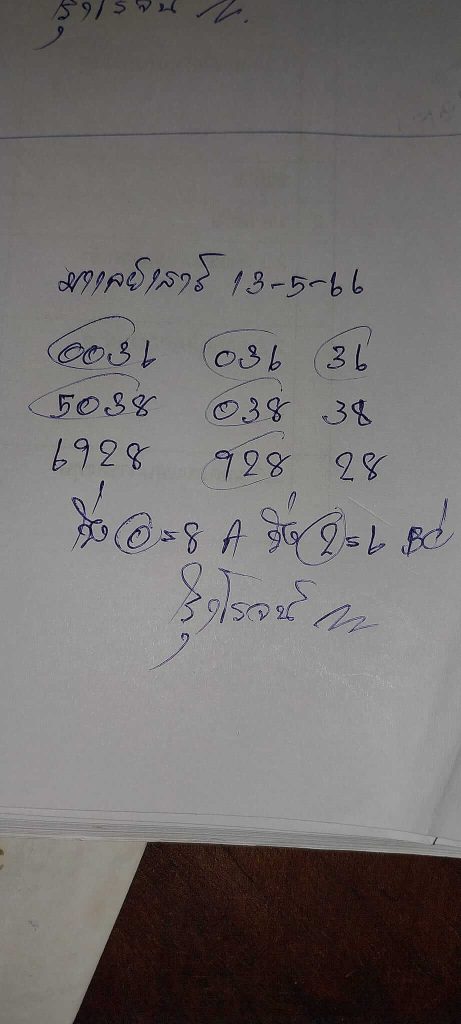 รุ่งโรจน์
มาเลย์เสาร์ 13-5-66
0036 036 36
5038 038 38
6928 928 28
วิ่ง 0=8 A วิ่ง 2=6 BC
รุ่งโรจน์